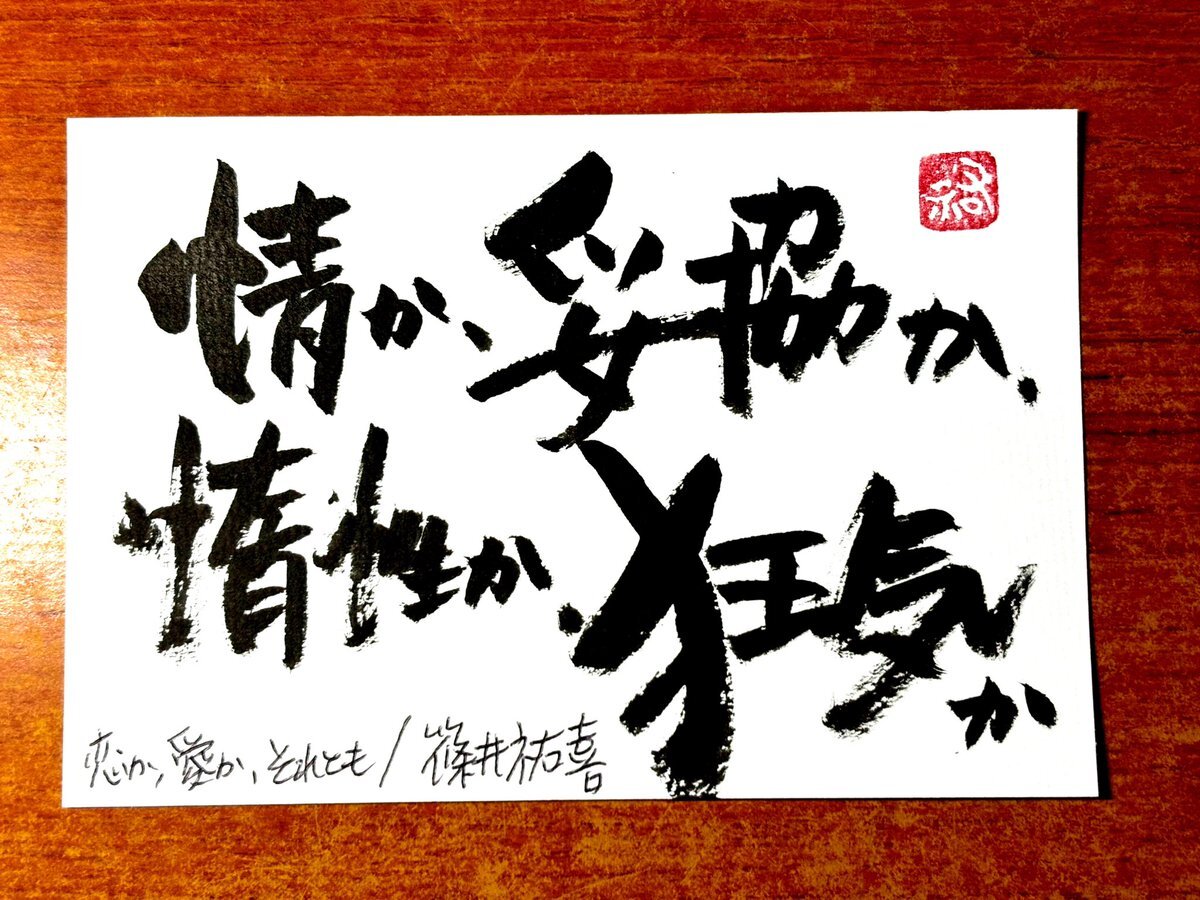 情か、妥協か、
惰性か、狂気か
恋か、愛か、それとも/篠井祐喜